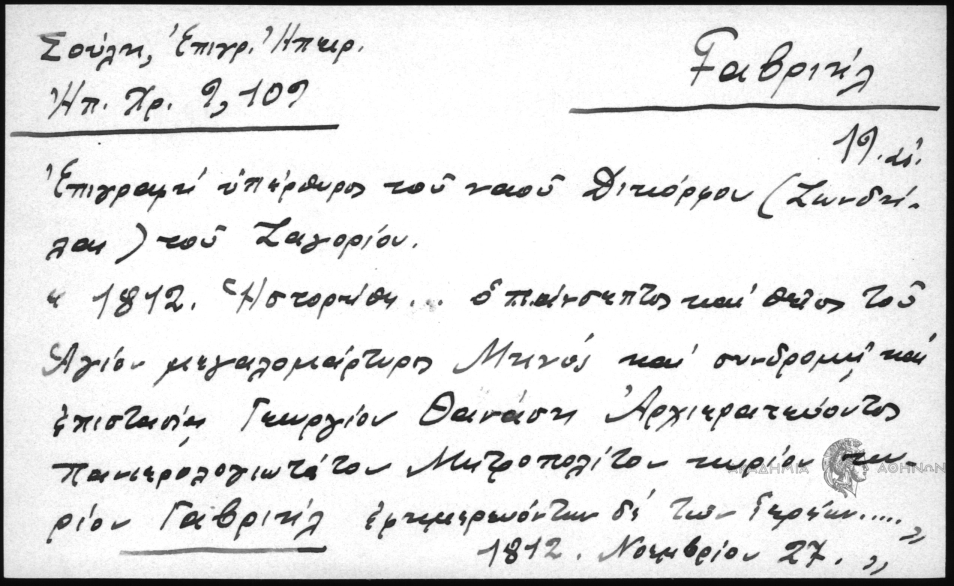 Σούλη, Ἐπιγρ. Ἠπειρ.
Ἠπ. Χρ. 9, 109
Γαβριήλ
19. αἰ.
Ἐπιγραφή ὑπέρθυρος τοῦ ναοῦ Δικόρφου (Ζωνδή-
λας) τοῦ Ζαγορίου.
" 1812. Ἡστορήθη... ὁ πάνσεπτος καί θεῖος τοῦ
Ἁγίου μεγαλομάρτυρος Μηνός καί συνδρομῇ καί
ἐπιστασίᾳ Γεωργίου Θανάση Ἀρχιερατεύοντος
Πανιερολογιωτάτου Μητροπολίτου κυρίου κυ-
ρίου Γαβριήλ ἐφημερευόντων δέ των Ἱερέων.....,,
1812. Νοεμβρίου 27. ,,
ΑΚΑΔΗΜΙΑ ΑΘΗΝΩΝ